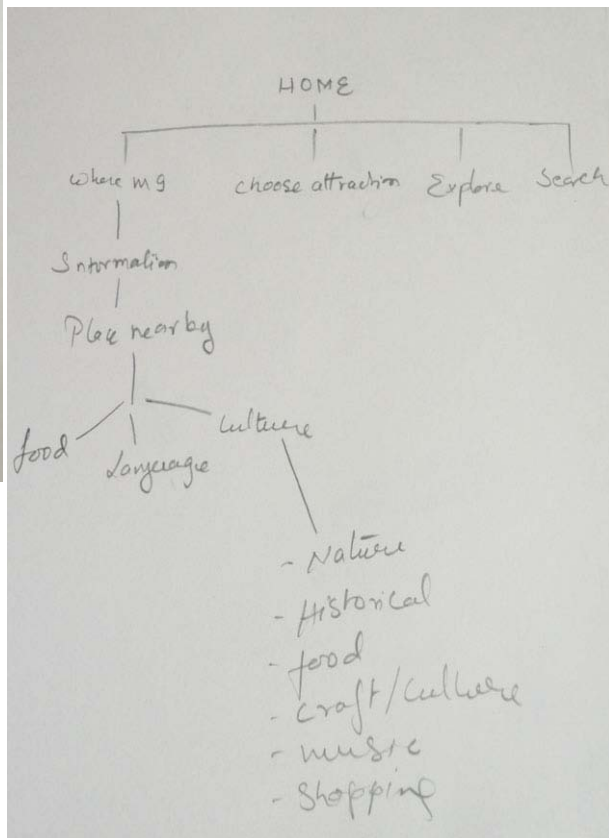 HOME
where m g choose attraction Explore Search
Information
Place nearby
food Language Culture
- Nature
- Historical
- food
- craft/culture
- music
- shopping